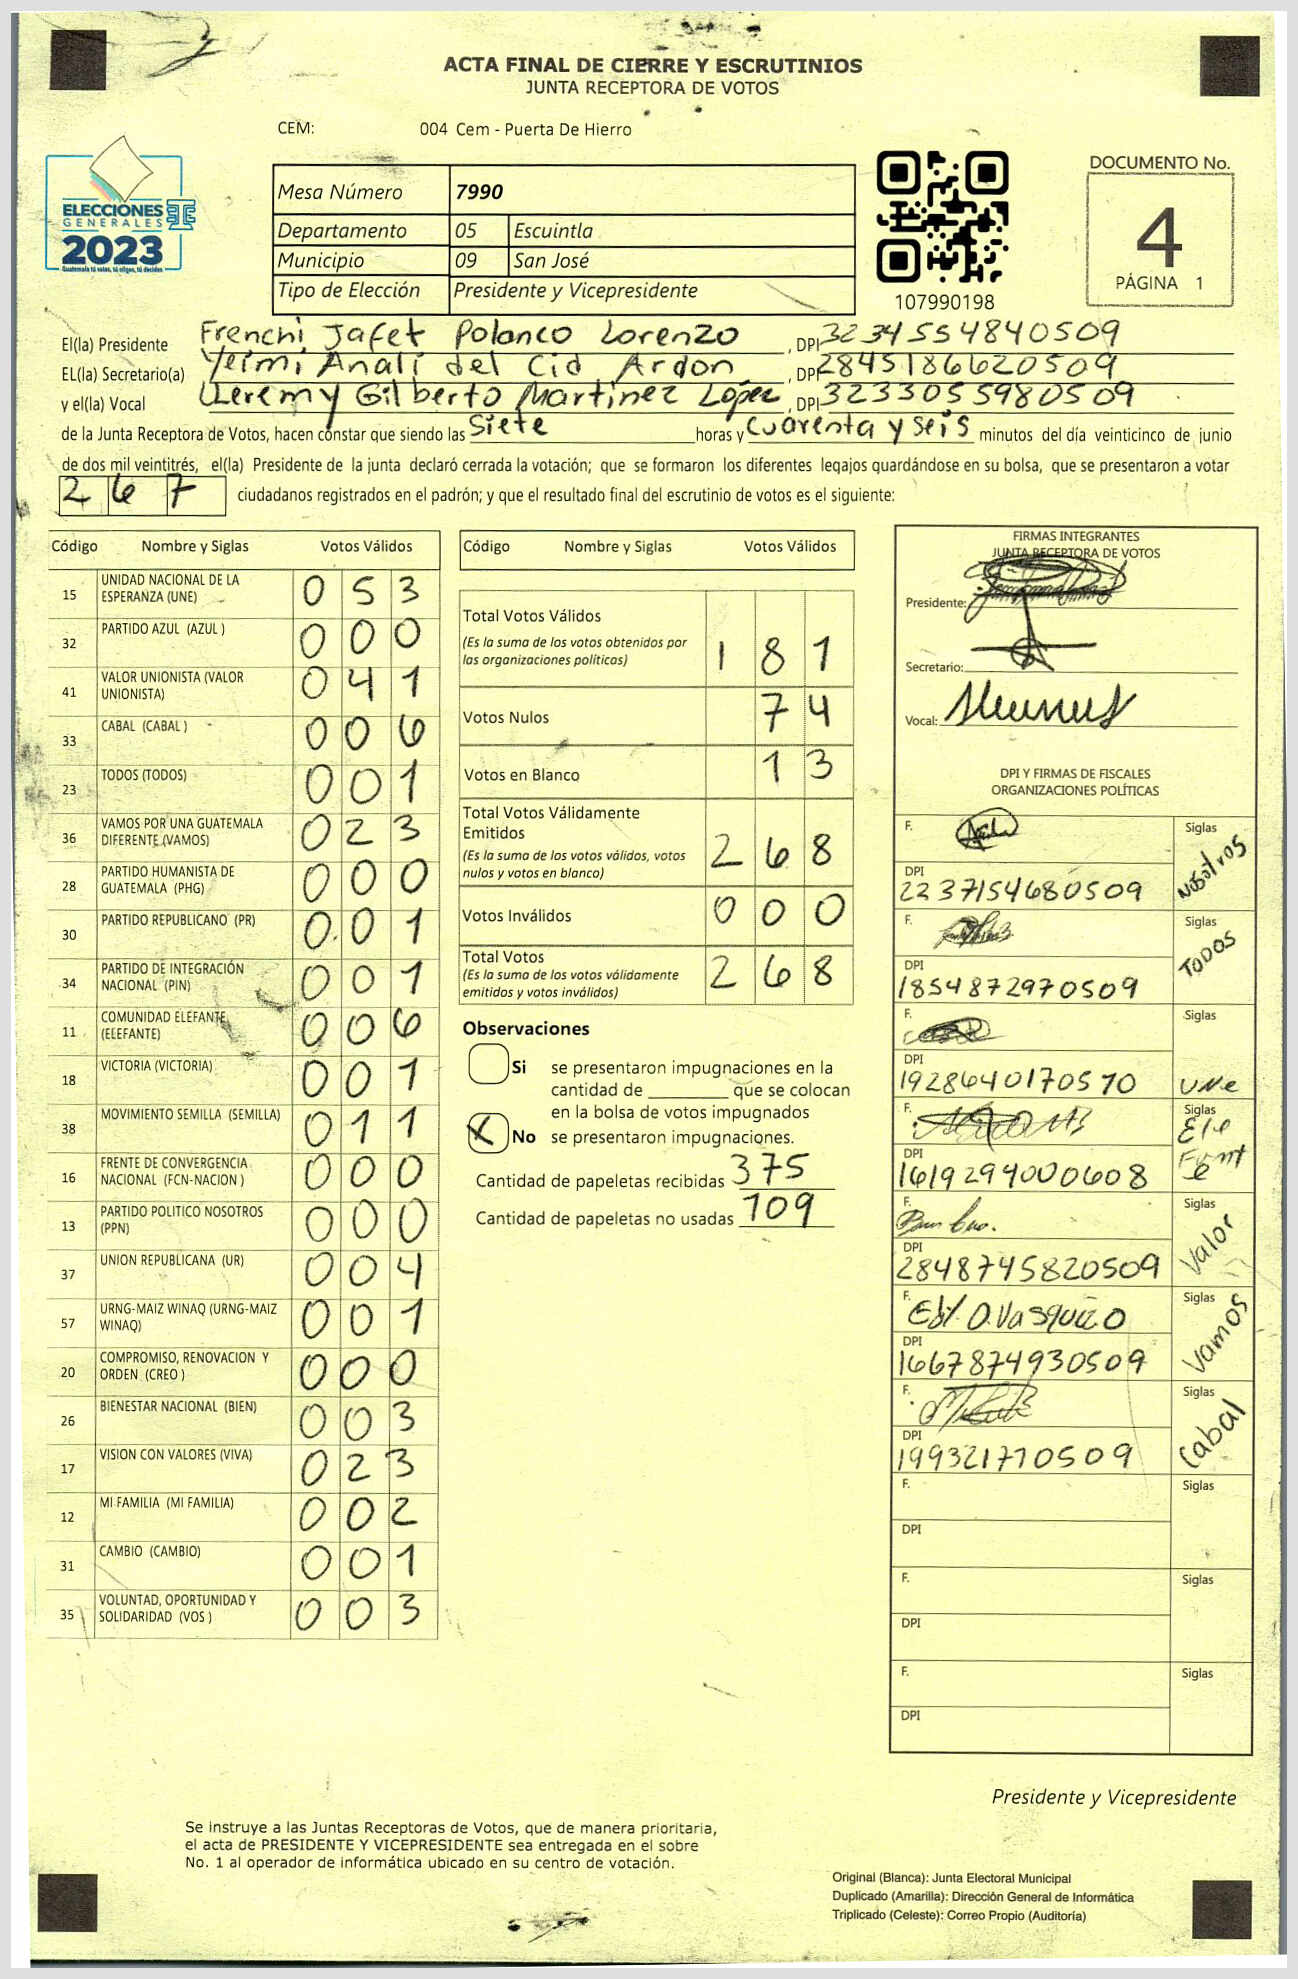 ACTA FINAL DE CIERRE Y ESCRUTINIOS
JUNTA RECEPTORA DE VOTOS
CEM: 004 Cem - Puerta De Hierro
ELECCIONES
GENERALES
2023
Guatemala tú votas, tú eliges, tú decides
Mesa Número 7990
Departamento 05 Escuintla
Municipio 09 San José
Tipo de Elección Presidente y Vicepresidente
107990198
DOCUMENTO No.
4
PÁGINA 1
El(la) Presidente Frenchi Jafet Polanco Lorenzo, DPI 3234554840509
EL(la) Secretario(a) Yeimi Analí del Cid Ardon, DPI 2845186620509
y el(la) Vocal Jeremy Gilberto Martinez López, DPI 3233055980509
de la Junta Receptora de Votos, hacen constar que siendo las Siete horas y Cuarenta y seis minutos del día veinticinco de junio
de dos mil veintitrés, el(la) Presidente de la junta declaró cerrada la votación; que se formaron los diferentes legajos guardándose en su bolsa, que se presentaron a votar
267 ciudadanos registrados en el padrón; y que el resultado final del escrutinio de votos es el siguiente:
Código Nombre y Siglas Votos Válidos
15 UNIDAD NACIONAL DE LA ESPERANZA (UNE) 053
32 PARTIDO AZUL (AZUL ) 000
41 VALOR UNIONISTA (VALOR UNIONISTA) 041
33 CABAL (CABAL ) 006
23 TODOS (TODOS) 001
36 VAMOS POR UNA GUATEMALA DIFERENTE (VAMOS) 023
28 PARTIDO HUMANISTA DE GUATEMALA (PHG) 000
30 PARTIDO REPUBLICANO (PR) 001
34 PARTIDO DE INTEGRACIÓN NACIONAL (PIN) 001
11 COMUNIDAD ELEFANTE (ELEFANTE) 006
18 VICTORIA (VICTORIA) 001
38 MOVIMIENTO SEMILLA (SEMILLA) 011
16 FRENTE DE CONVERGENCIA NACIONAL (FCN-NACION ) 000
13 PARTIDO POLITICO NOSOTROS (PPN) 000
37 UNION REPUBLICANA (UR) 004
57 URNG-MAIZ WINAQ (URNG-MAIZ WINAQ) 001
20 COMPROMISO, RENOVACION Y ORDEN (CREO ) 000
26 BIENESTAR NACIONAL (BIEN) 003
17 VISION CON VALORES (VIVA) 023
12 MI FAMILIA (MI FAMILIA) 002
31 CAMBIO (CAMBIO) 001
35 VOLUNTAD, OPORTUNIDAD Y SOLIDARIDAD (VOS ) 003
Código Nombre y Siglas Votos Válidos
Total Votos Válidos 181
(Es la suma de los votos obtenidos por
las organizaciones políticas)
Votos Nulos 74
Votos en Blanco 13
Total Votos Válidamente
Emitidos 268
(Es la suma de los votos válidos, votos
nulos y votos en blanco)
Votos Inválidos 000
Total Votos 268
(Es la suma de los votos válidamente
emitidos y votos inválidos)
Observaciones
Si se presentaron impugnaciones en la
cantidad de ________ que se colocan
en la bolsa de votos impugnados
X No se presentaron impugnaciones.
Cantidad de papeletas recibidas 375
Cantidad de papeletas no usadas 109
FIRMAS INTEGRANTES
JUNTA RECEPTORA DE VOTOS
Presidente:
Secretario:
Vocal:
DPI Y FIRMAS DE FISCALES
ORGANIZACIONES POLÍTICAS
F. Siglas Nosotros
DPI 2237154680509
F. Siglas TODOS
DPI 1854872970509
F. Siglas UNe
DPI 1928640170510
F. Siglas Elefante
DPI 1619294000608
F. Siglas Valor
DPI 2848745820509
F. Siglas Vamos
DPI 1667874930509
F. Siglas Cabal
DPI 199321770509
F. Siglas
DPI
F. Siglas
DPI
F. Siglas
DPI
Presidente y Vicepresidente
Se instruye a las Juntas Receptoras de Votos, que de manera prioritaria,
el acta de PRESIDENTE Y VICEPRESIDENTE sea entregada en el sobre
No. 1 al operador de informática ubicado en su centro de votación.
Original (Blanca): Junta Electoral Municipal
Duplicado (Amarilla): Dirección General de Informática
Triplicado (Celeste): Correo Propio (Auditoría)